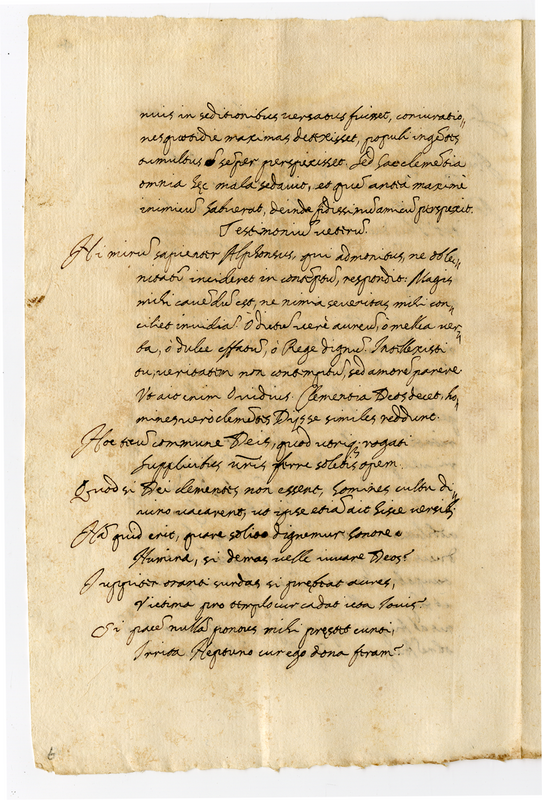 nuis in seditionibus versatus fuisset, coniuratio„
nes quotidie maximas detexisset, populi ingẽtes
tumultus sẽper perspexisset. Sed hac clemẽtia
omnia hęc mala sedauit, et quẽ anteà maximè
inimicũ habuerat, deinde fidissimũ amicũ perspexit.
Testimoniũ vetterũ.
Ni mirũ sapienter Alphonsus, qui admonitus, ne ob le„
nitatẽ incideret in contẽptũ, respondit. Magis
mihi cauedũ est, ne nimia seueritas mihi con„
ciliet inuidiã. O dictũ verè aureũ, ò mellea ver„
ba, ò dulce effatũ, ò Rege dignũ. Intellexisti
tu, veritatem non contemptũ, sed amorẽ parere
Vt ait enim Ouidius. Clementia Deos decet, ho„
mines verò clemẽtes Dijs se similes reddunt.
Hoc tecũ commune Deis, quod vtriq; rogati
Supplicibus vr̃is ferre soletis opem.
Quod si Dei clementes non essent, homines cultu di„
uino vacarent, vt ipse etiã ait hisce versib;
Nã quid erit, quare solito dignemur honore
Numina, si demas velle iuuare Deos?
Iuppiter oranti surdas si pręstat aures,
Victima pro templo cur cadat icta Iouis?
Si pacẽ nullã pontus mihi pręstet eunti,
Irrita Neptuno cur ego dona feram?
6